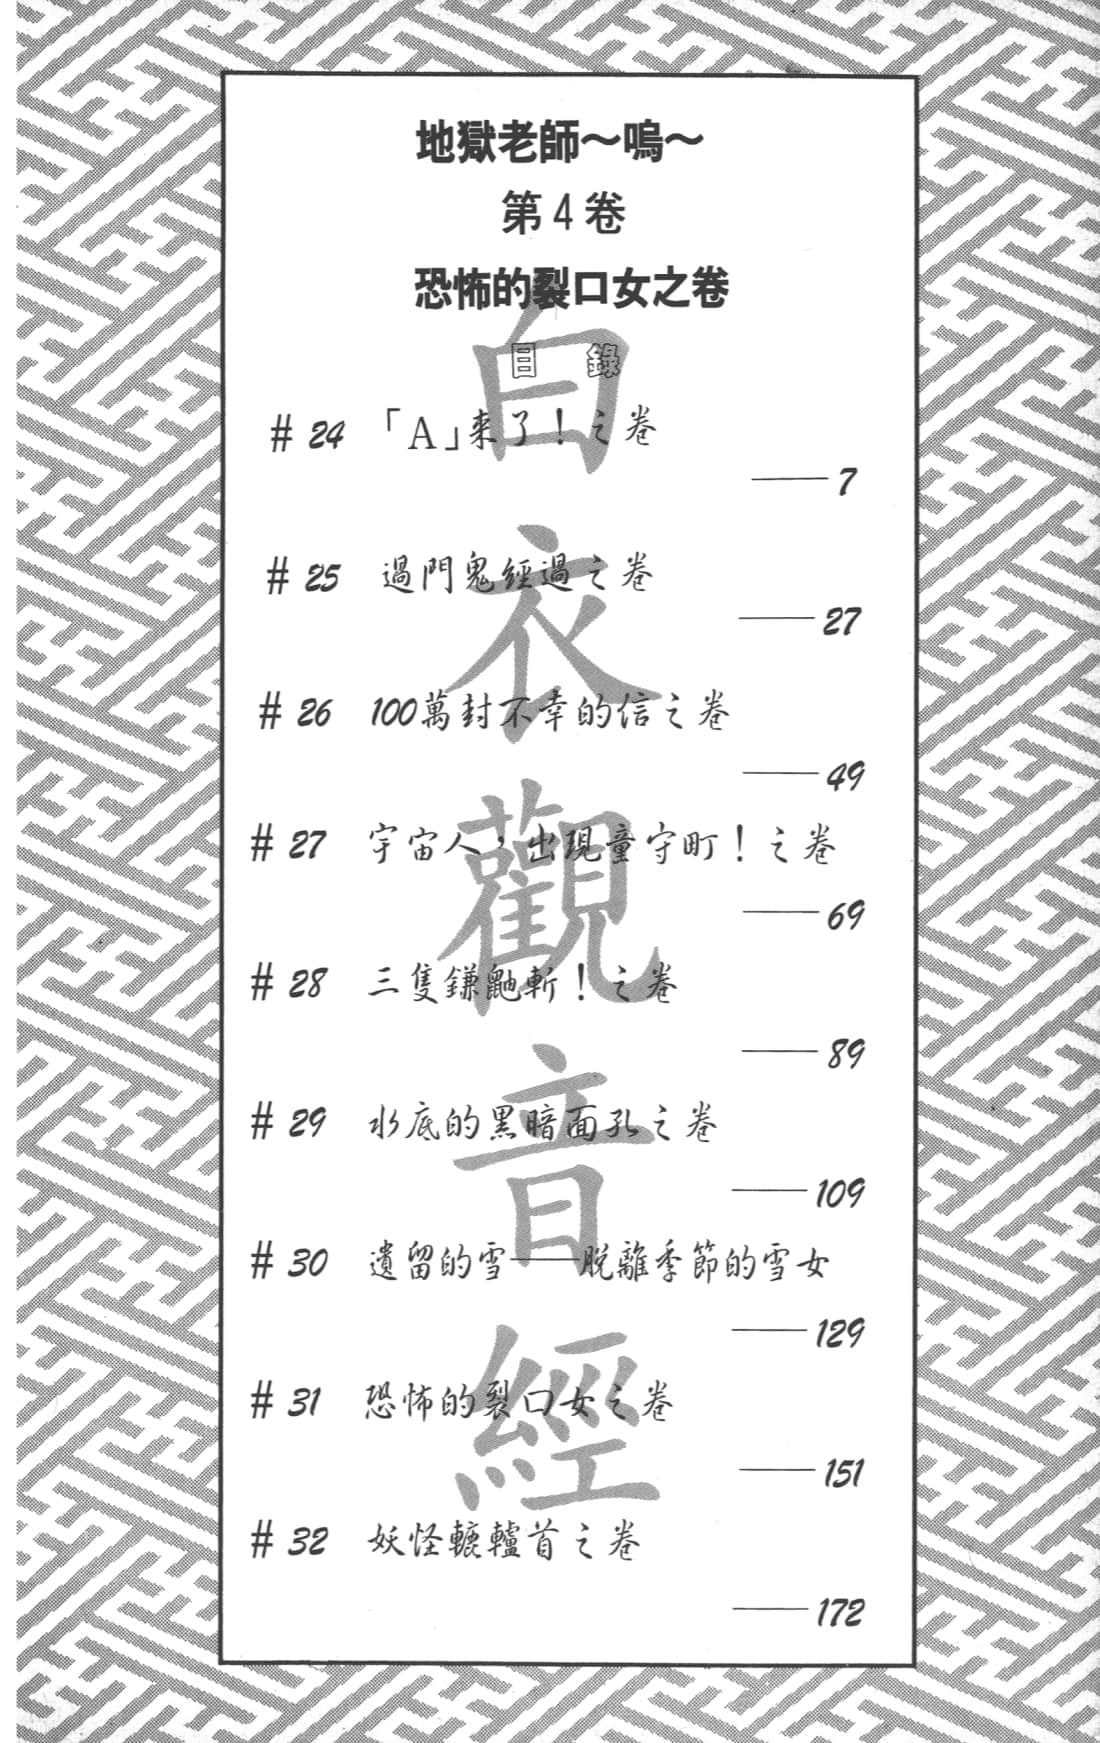 地獄老師～嗚～
第4卷
恐怖的裂口女之卷
目 錄
白衣觀音經
# 24 「A」來了！之卷
——7
# 25 過門鬼經過之卷
——27
# 26 100萬封不幸的信之卷
——49
# 27 宇宙人，出現童守町！之卷
——69
# 28 三隻鎌鼬斬！之卷
——89
# 29 水底的黑暗面孔之卷
——109
# 30 遺留的雪——脫離季節的雪女
——129
# 31 恐怖的裂口女之卷
——151
# 32 妖怪轆轤首之卷
——172